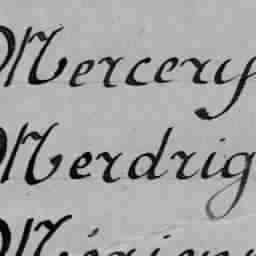 Mercery
Merdrig